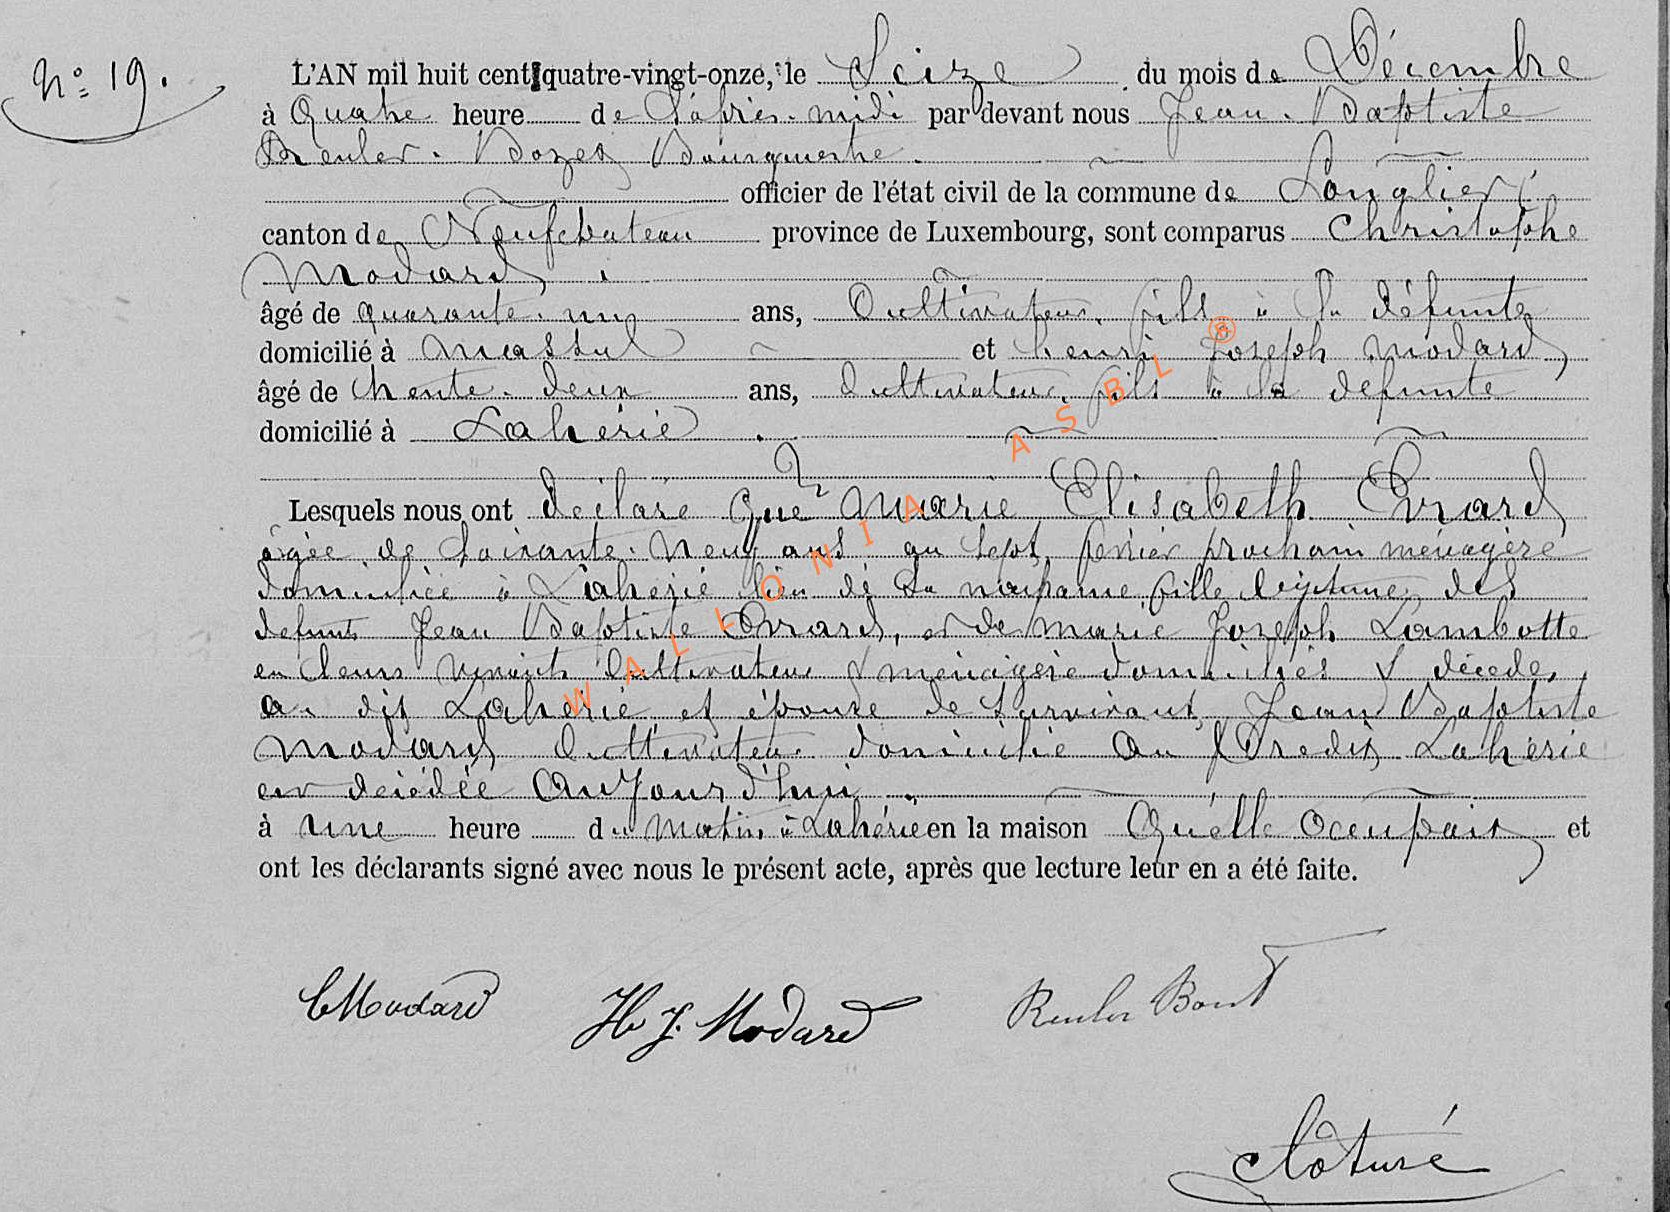 N° 19.
L'AN mil huit cent quatre-vingt-onze, le Seize du mois de Décembre
à Quatre heure de l'après-midi par devant nous Jean-Baptiste
Reuler-Bozet Bourgmestre.
officier de l'état civil de la commune de Longlier
canton de Neufchateau province de Luxembourg, sont comparus Christophe
Modard,
âgé de quarante-un ans, Cultivateur, fils à la défunte
domicilié à Massul et henri Joseph Modard
âgé de trente-deux ans, Cultivateur, fils à la défunte
domicilié à Lahérie.
Lesquels nous ont déclaré que Marie Elisabeth Evrard
âgée de soixante-neuf ans au sept février prochain ménagère
domiciliée à Lahérie lieu de sa naissance, fille légitime des
defunts Jean Baptiste Evrard, et de Marie Joseph Lambotte
en leurs vivants Cultivateur & ménagère domiciliés & décédés
au dit Lahérie et épouse de survivant, Jean Baptiste
Modard Cultivateur domicilié au predit Lahérie
est décédée Aujourd'hui.
à une heure du matin à Lahérie en la maison Qu'elle occupait et
ont les déclarants signé avec nous le présent acte, après que lecture leur en a été faite.
C Modard H J. Modard Reuler Bozet
Clôturé
WALLONIA ASBL ®